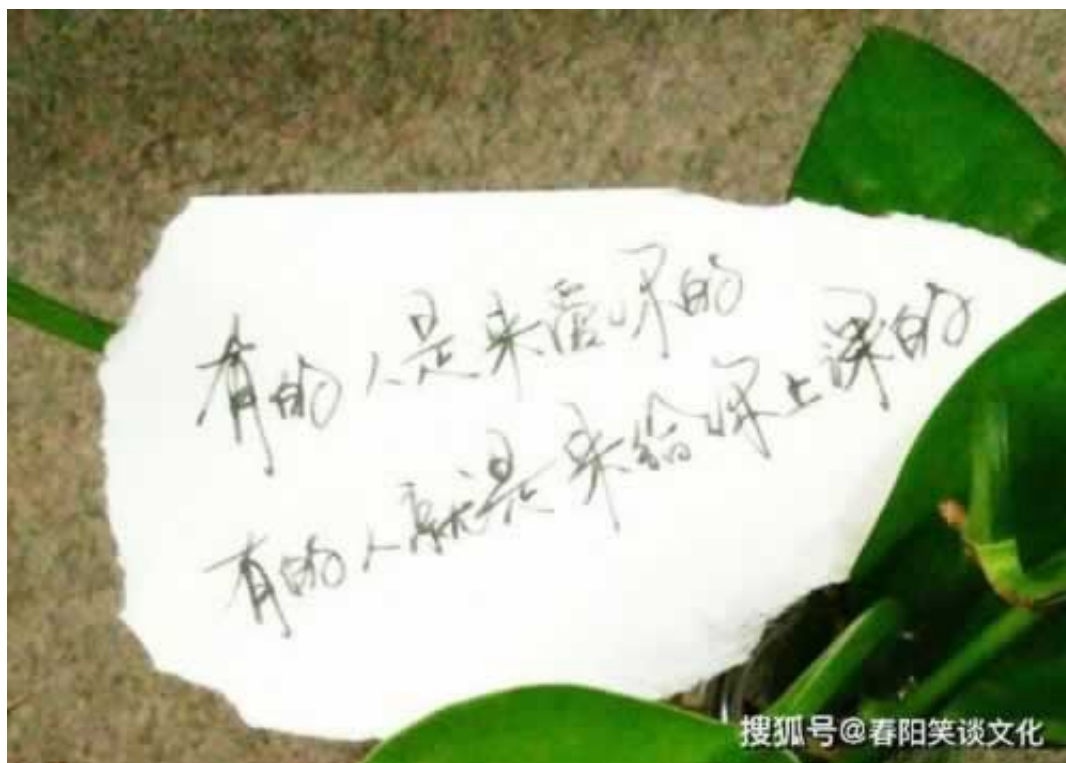 有的人是来爱你的
有的人就是来给你上课的
搜狐号@春阳笑谈文化